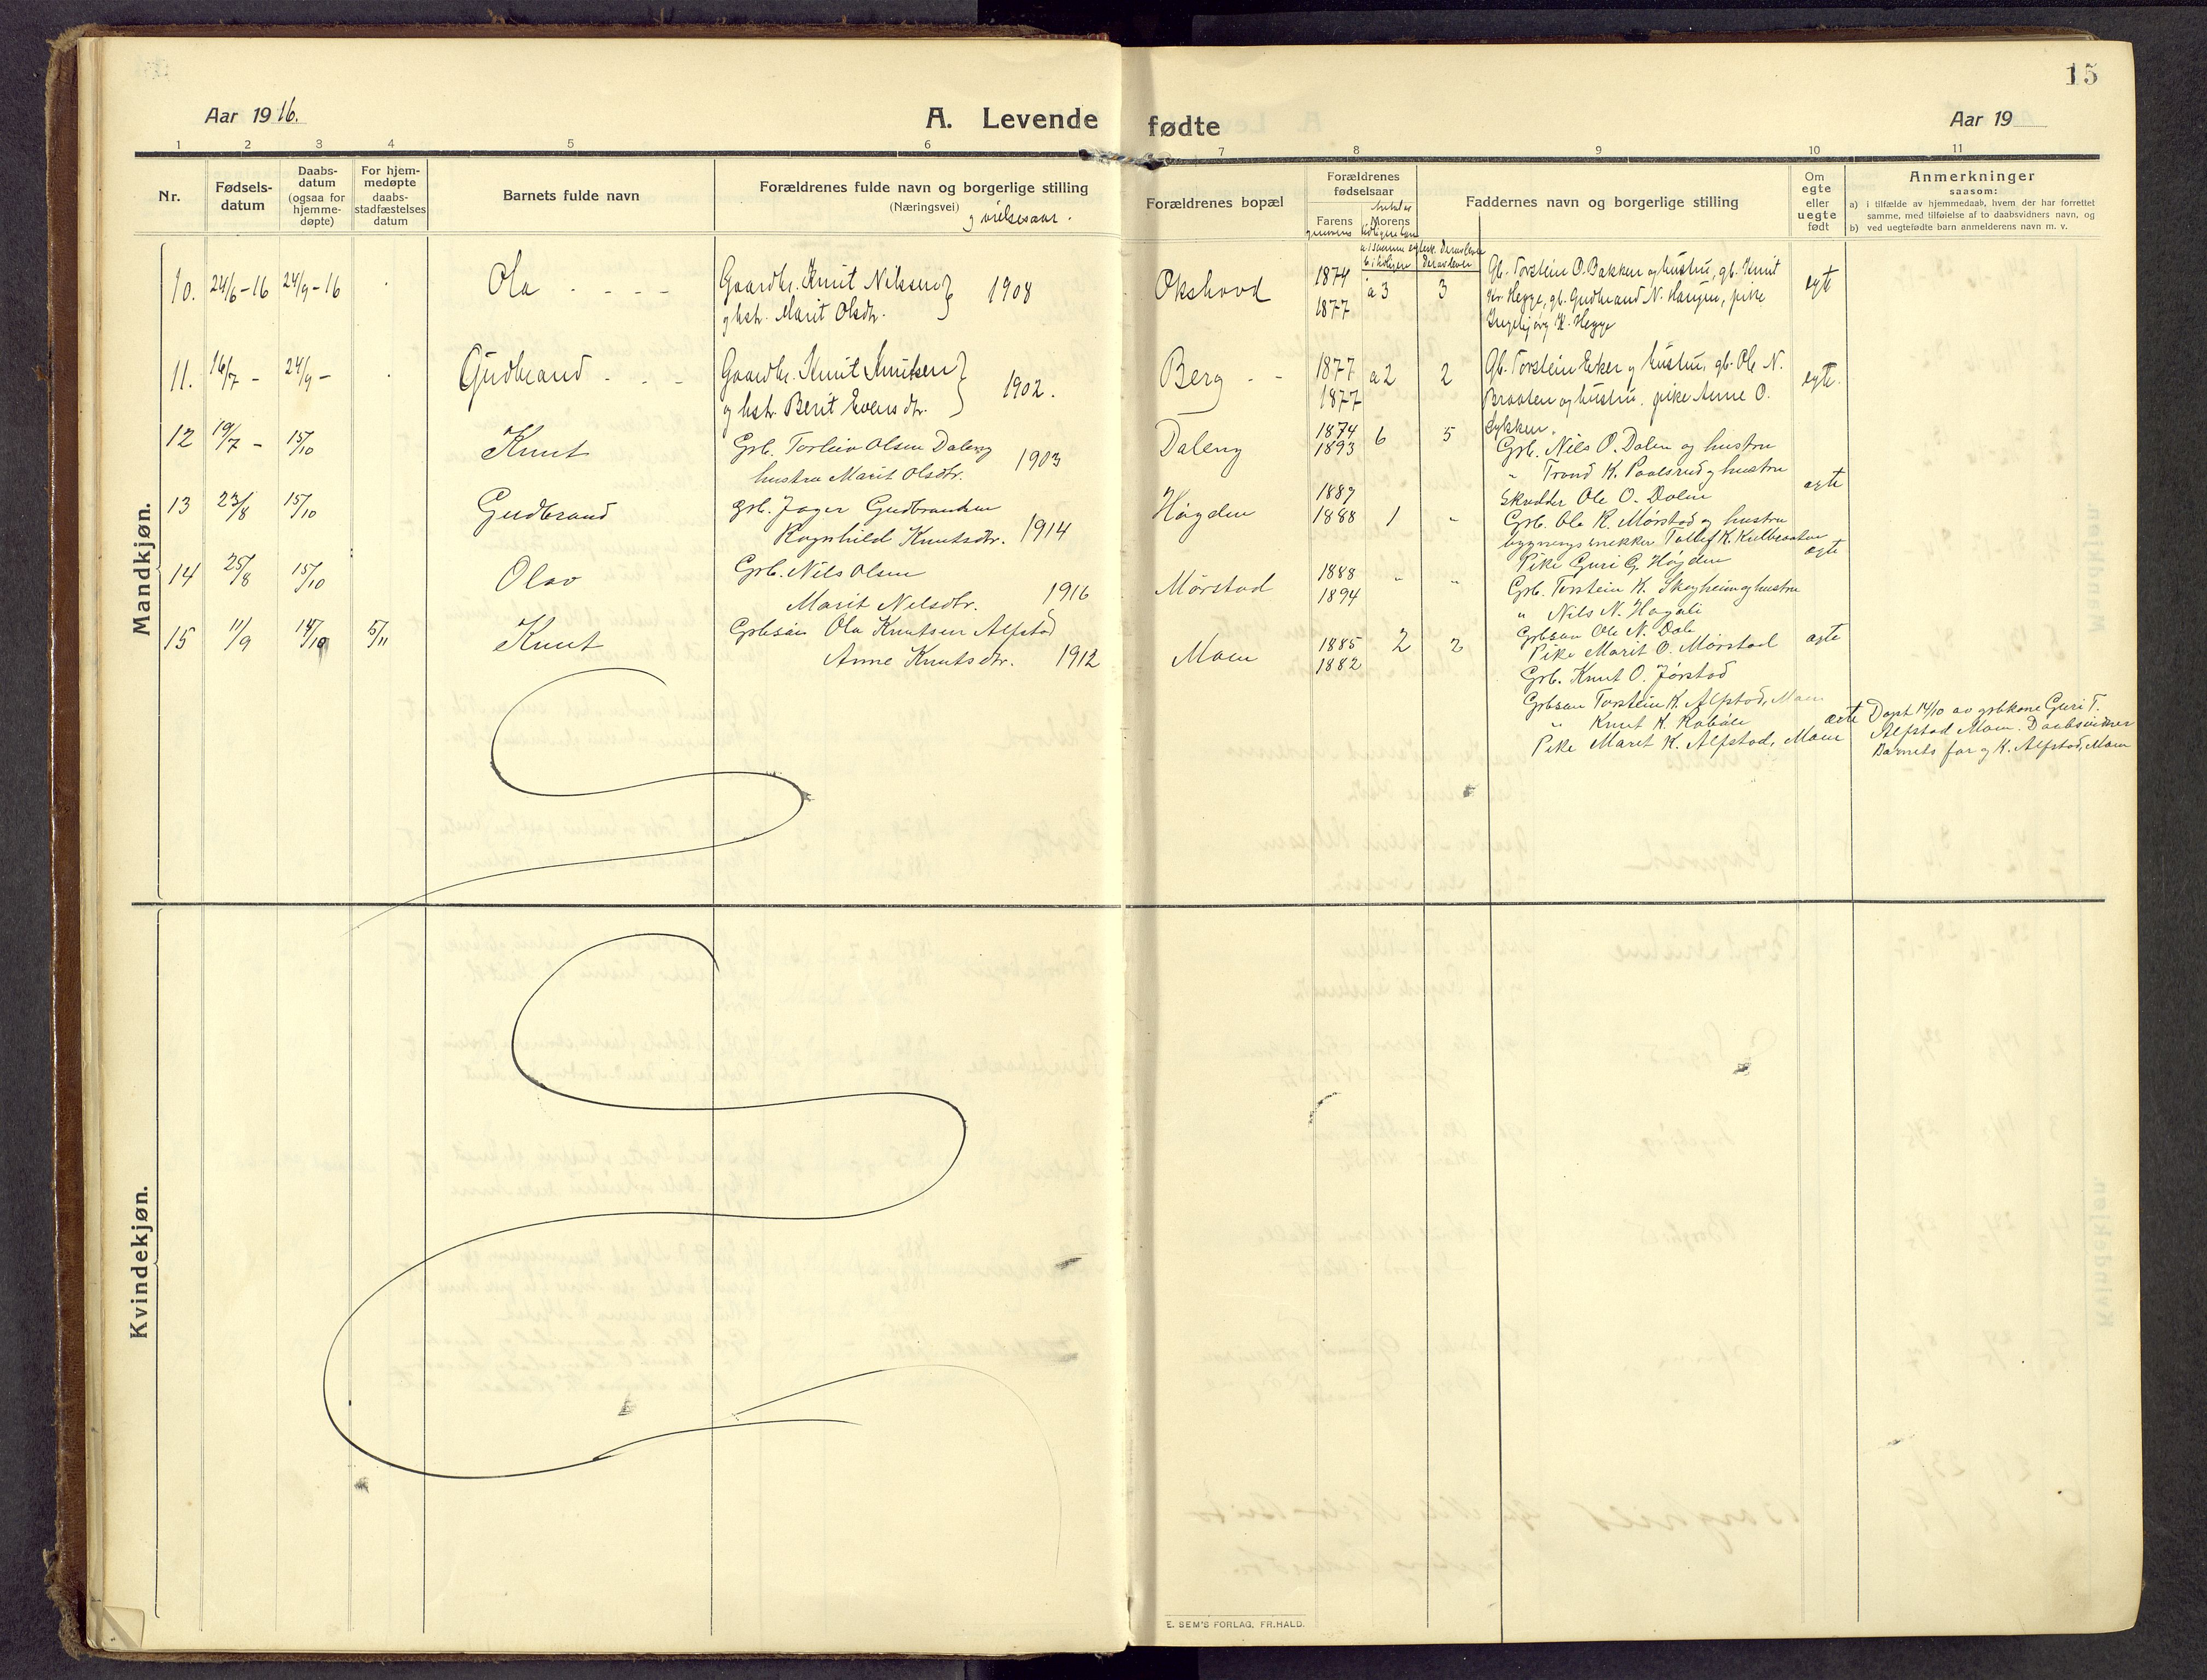 15
Aar 19 16.
A. Levende fødte
Aar 19
1 2 3 4 5 6 7 8 9 10 11
Nr.
Fødsels-
datum
Daabs-
datum
(ogsaa for
hjemme-
døpte)
For hjem-
medøpte
daabs-
stadfæstelses
datum
Barnets fulde navn
Forældrenes fulde navn og borgerlige stilling
(Næringsvei)
og vielsesaar.
Forældrenes bopæl
Forældrenes
fødselsaar
Farens
Morens
Faddernes navn og borgerlige stilling
Om
egte
eller
uegte
født
Anmerkninger
saasom:
a) i tilfælde av hjemmedaab, hvem der har forrettet
samme, med tilføielse af to daabsvidners navn, og
b) ved uegtefødte barn anmelderens navn m. v.
Mandkjøn.
10. 24/6-16 24/9-16 Ola Gaardbr. Knut Nilssen
og hstr. Marit Olsdtr. 1908
Okshovd 1874 1877 a 3 3
Gb. Torstein O. Bakken og hustru, gb. Knut
Hegge, gb. Gudbrand N. Haugen, pike
Ingebjørg K. Hegge
egt
11. 16/7 - 24/9 - Gudbrand Gaardbr. Knut Knutsen
og hstr. Berit Eversdtr. 1902.
Berg 1877 1877 a 2 2
Gb. Torstein Eker og hustru, gb. Ole N.
Braaten og hustru, pike Anne O.
Lykken.
egte.
12 19/7 - 15/10 Knut Grb. Torleiv Olsen Daleng
hustru Marit Olsdtr. 1903
Daleng 1874 1893 6 5
Grb. Nils O. Dalen og hustru
" Trond K. Paalsrud og hustru
Skrædder Ole O. Dalen
egte
13 23/8 15/10 Gudbrand grb. Jøger Gudbrandsen
Ragnhild Knutsdtr. 1914
Høgden 1889 1888 1 -
Grb. Ole K. Mørstad og hustru
bygningssnekker Tollef K. Kulbraaten
Pike Guri G. Høgden
egte
14 25/8 15/10 Olav Grb. Nils Olsen
Marit Nilsdtr. 1916
Mørstad 1888 1894 - -
Grb. Torstein K. Skogheim og hustru
" Nils N. Hagali
Grbsøn Ole N. Dale
Pike Marit O. Mørstad
egte
15 11/9 14/10 5/11 Knut Grbsøn Ola Knutsen Alfstad
Anne Knutsdtr. 1912
Moen 1885 1882 2 2
Grb. Knut O. Jørstad
Grbsøn Torstein K. Alfstad, Moen
" Knut K. Rabale
Pike Marit K. Alfstad, Moen
egte
Døpt 14/10 av grbkone Guri T.
Alfstad Moen. Daabsvidner
Barnets far og K. Alfstad, Moen
Kvindekjøn.
E. SEM'S FORLAG, FR.HALD.